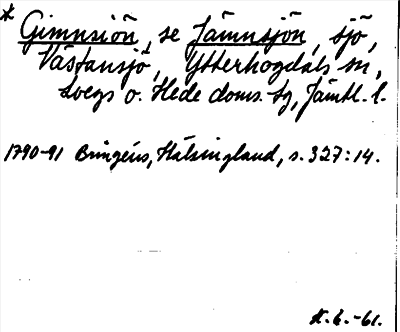 * Gimnsiön, se Jämnsjön, sjö,
Västansjö, Ytterhogdals sn,
Svegs o. Hede doms. tg, Jämtl. l.
1790-91 Bringéus, Hälsingland, s. 327:14.